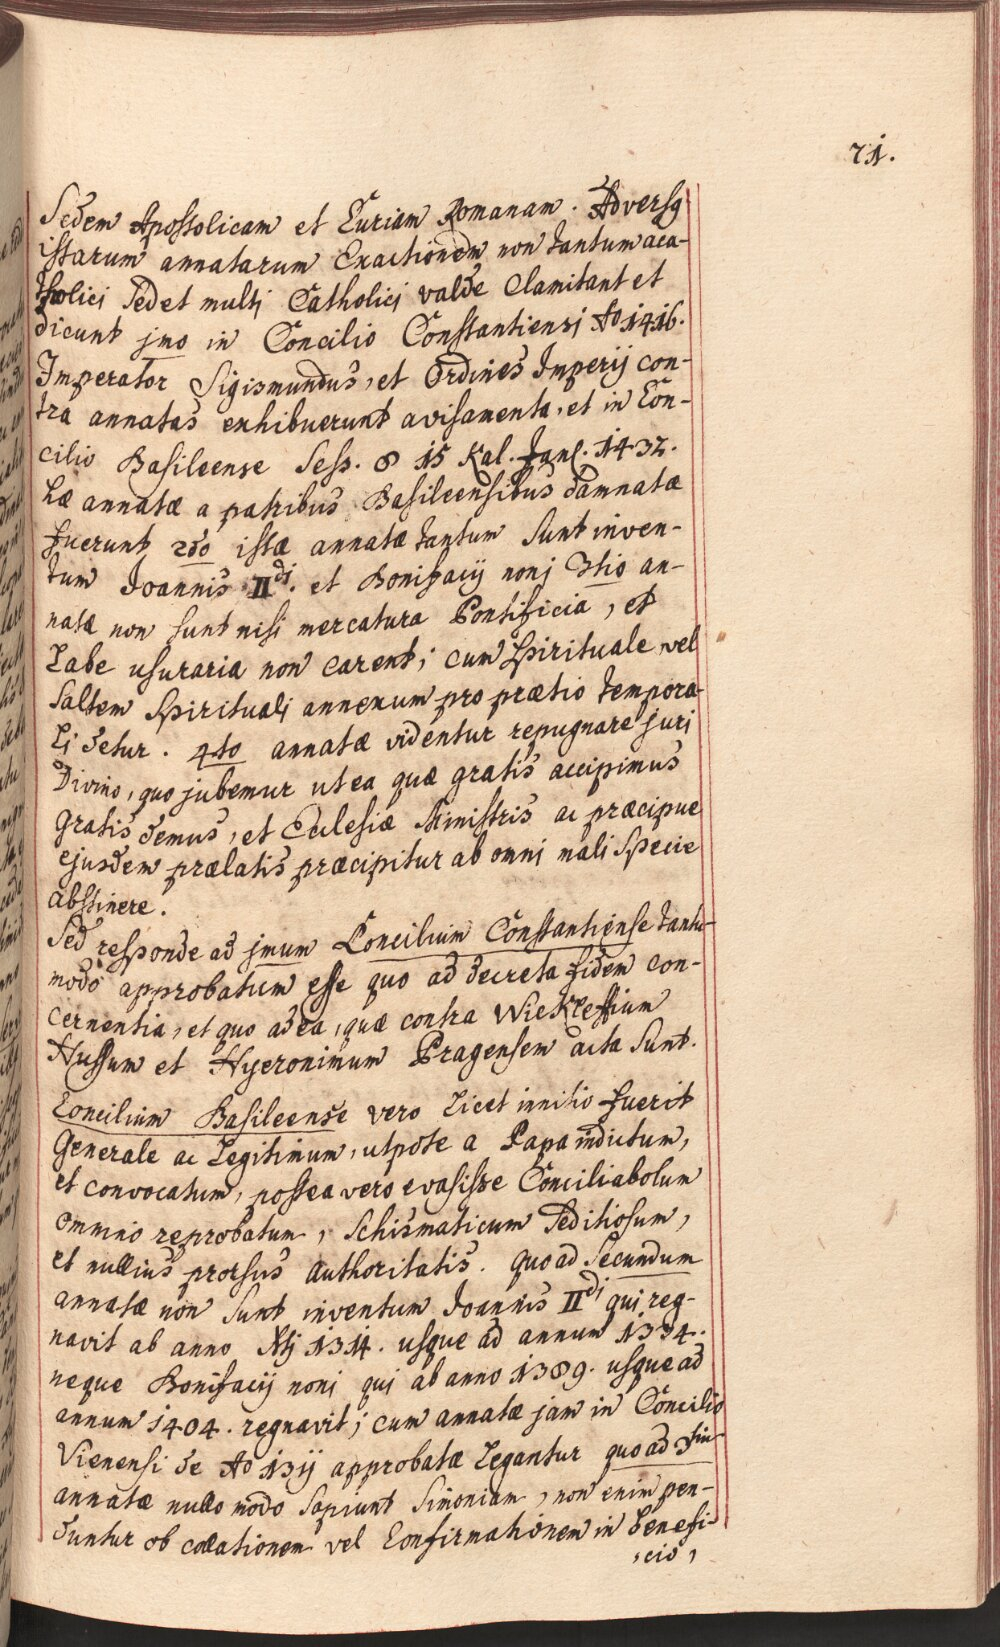 71.
Sedem Apostolicam et Curiam Romanam. Adversq
istarum annatarum Exactionem non tantum aca-
tholici sed et multi Catholici valde Clamitant et
dicunt jmo in Concilio Constantiensi Ao 1416.
Imperator Sigismundus, et Ordines Imperij con-
tra annatas exhibuerunt avisamenta, et in Con-
cilio Basileense Sess. 8 15 Kal. Janl. 1432.
hæ annatæ a patribus Basileensibus damnatæ
fuerunt 2do istæ annatæ tantum sunt inven-
tum Joannis IIdi. et Bonifacij noni 3tio an-
natæ non sunt nisi mercatura Pontificia, et
Labe usuraria non carent; cum spirituale vel
saltem spirituali annexum pro prætio tempora-
li detur. 4to annatæ videntur repugnare juri
Divino, quo jubemur ut ea quæ gratis accipimus
gratis demus, et Eclesiæ Ministris ac præcipue
ejusdem prælatis præcipitur ab omni mali specie
abstinere.
Sed responde ad jmum Concilium Constantiense tantu-
modo approbatum esse quo ad decreta fidem con-
cernentia, et quo ad ea, quæ contra Wickleffium
Hussum et Hyeronimum Pragensem acta sunt.
Concilium Basileense vero Licet innitio fuerit
Generale ac Legitimum, utpote a Papa indictum,
et convocatum, postea vero evasisse Conciliabolum
omnino reprobatum, schismaticum seditiosum,
et nullius prorsus Authoritatis. quo ad Secundum
annatæ non sunt inventum Joannis IIdi qui reg-
navit ab anno Xti 1314. usque ad annum 1334.
neque Bonifacij noni qui ab anno 1389. usque ad
annum 1404. regnavit; cum annatæ jam in Concilio
Vienensi de Ao 13ij approbatæ Legantur quo ad 3tiu-
annatæ nullo modo sapiunt simoniam, non enim pen-
duntur ob collationem vel Confirmationem in benefi-
cio,